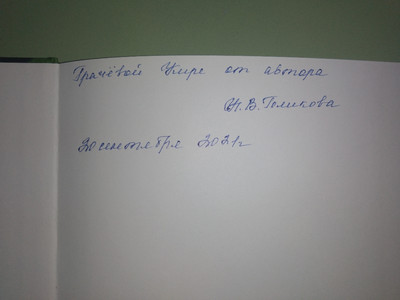 Грачёвой Кире от автора
Н. В. Голикова
20 сентября 2021г